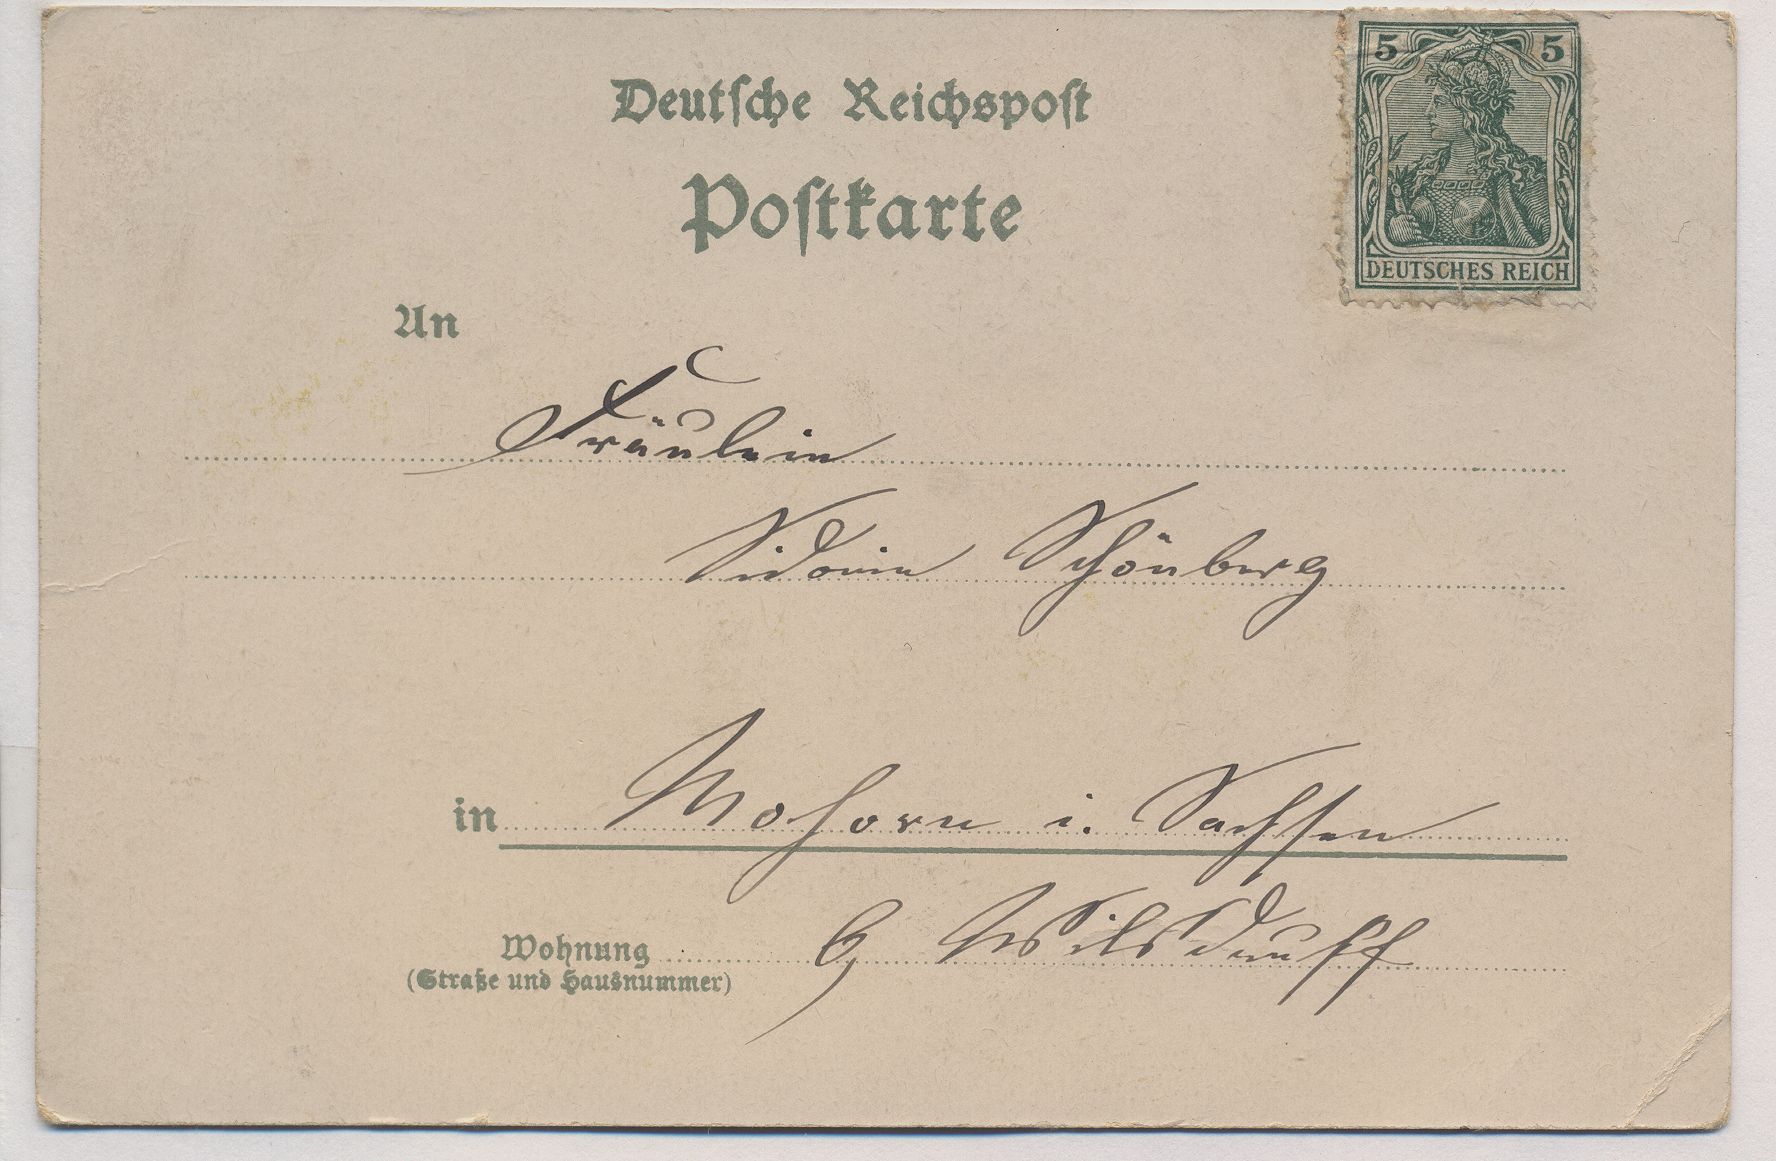 Deutsche Reichspost
Postkarte
5 5
DEUTSCHES REICH
An
Fräulein
Sidonie Schönberg
in Mohorn i. Sachsen
Wohnung b/ Wilsdruff
(Straße und Hausnummer)